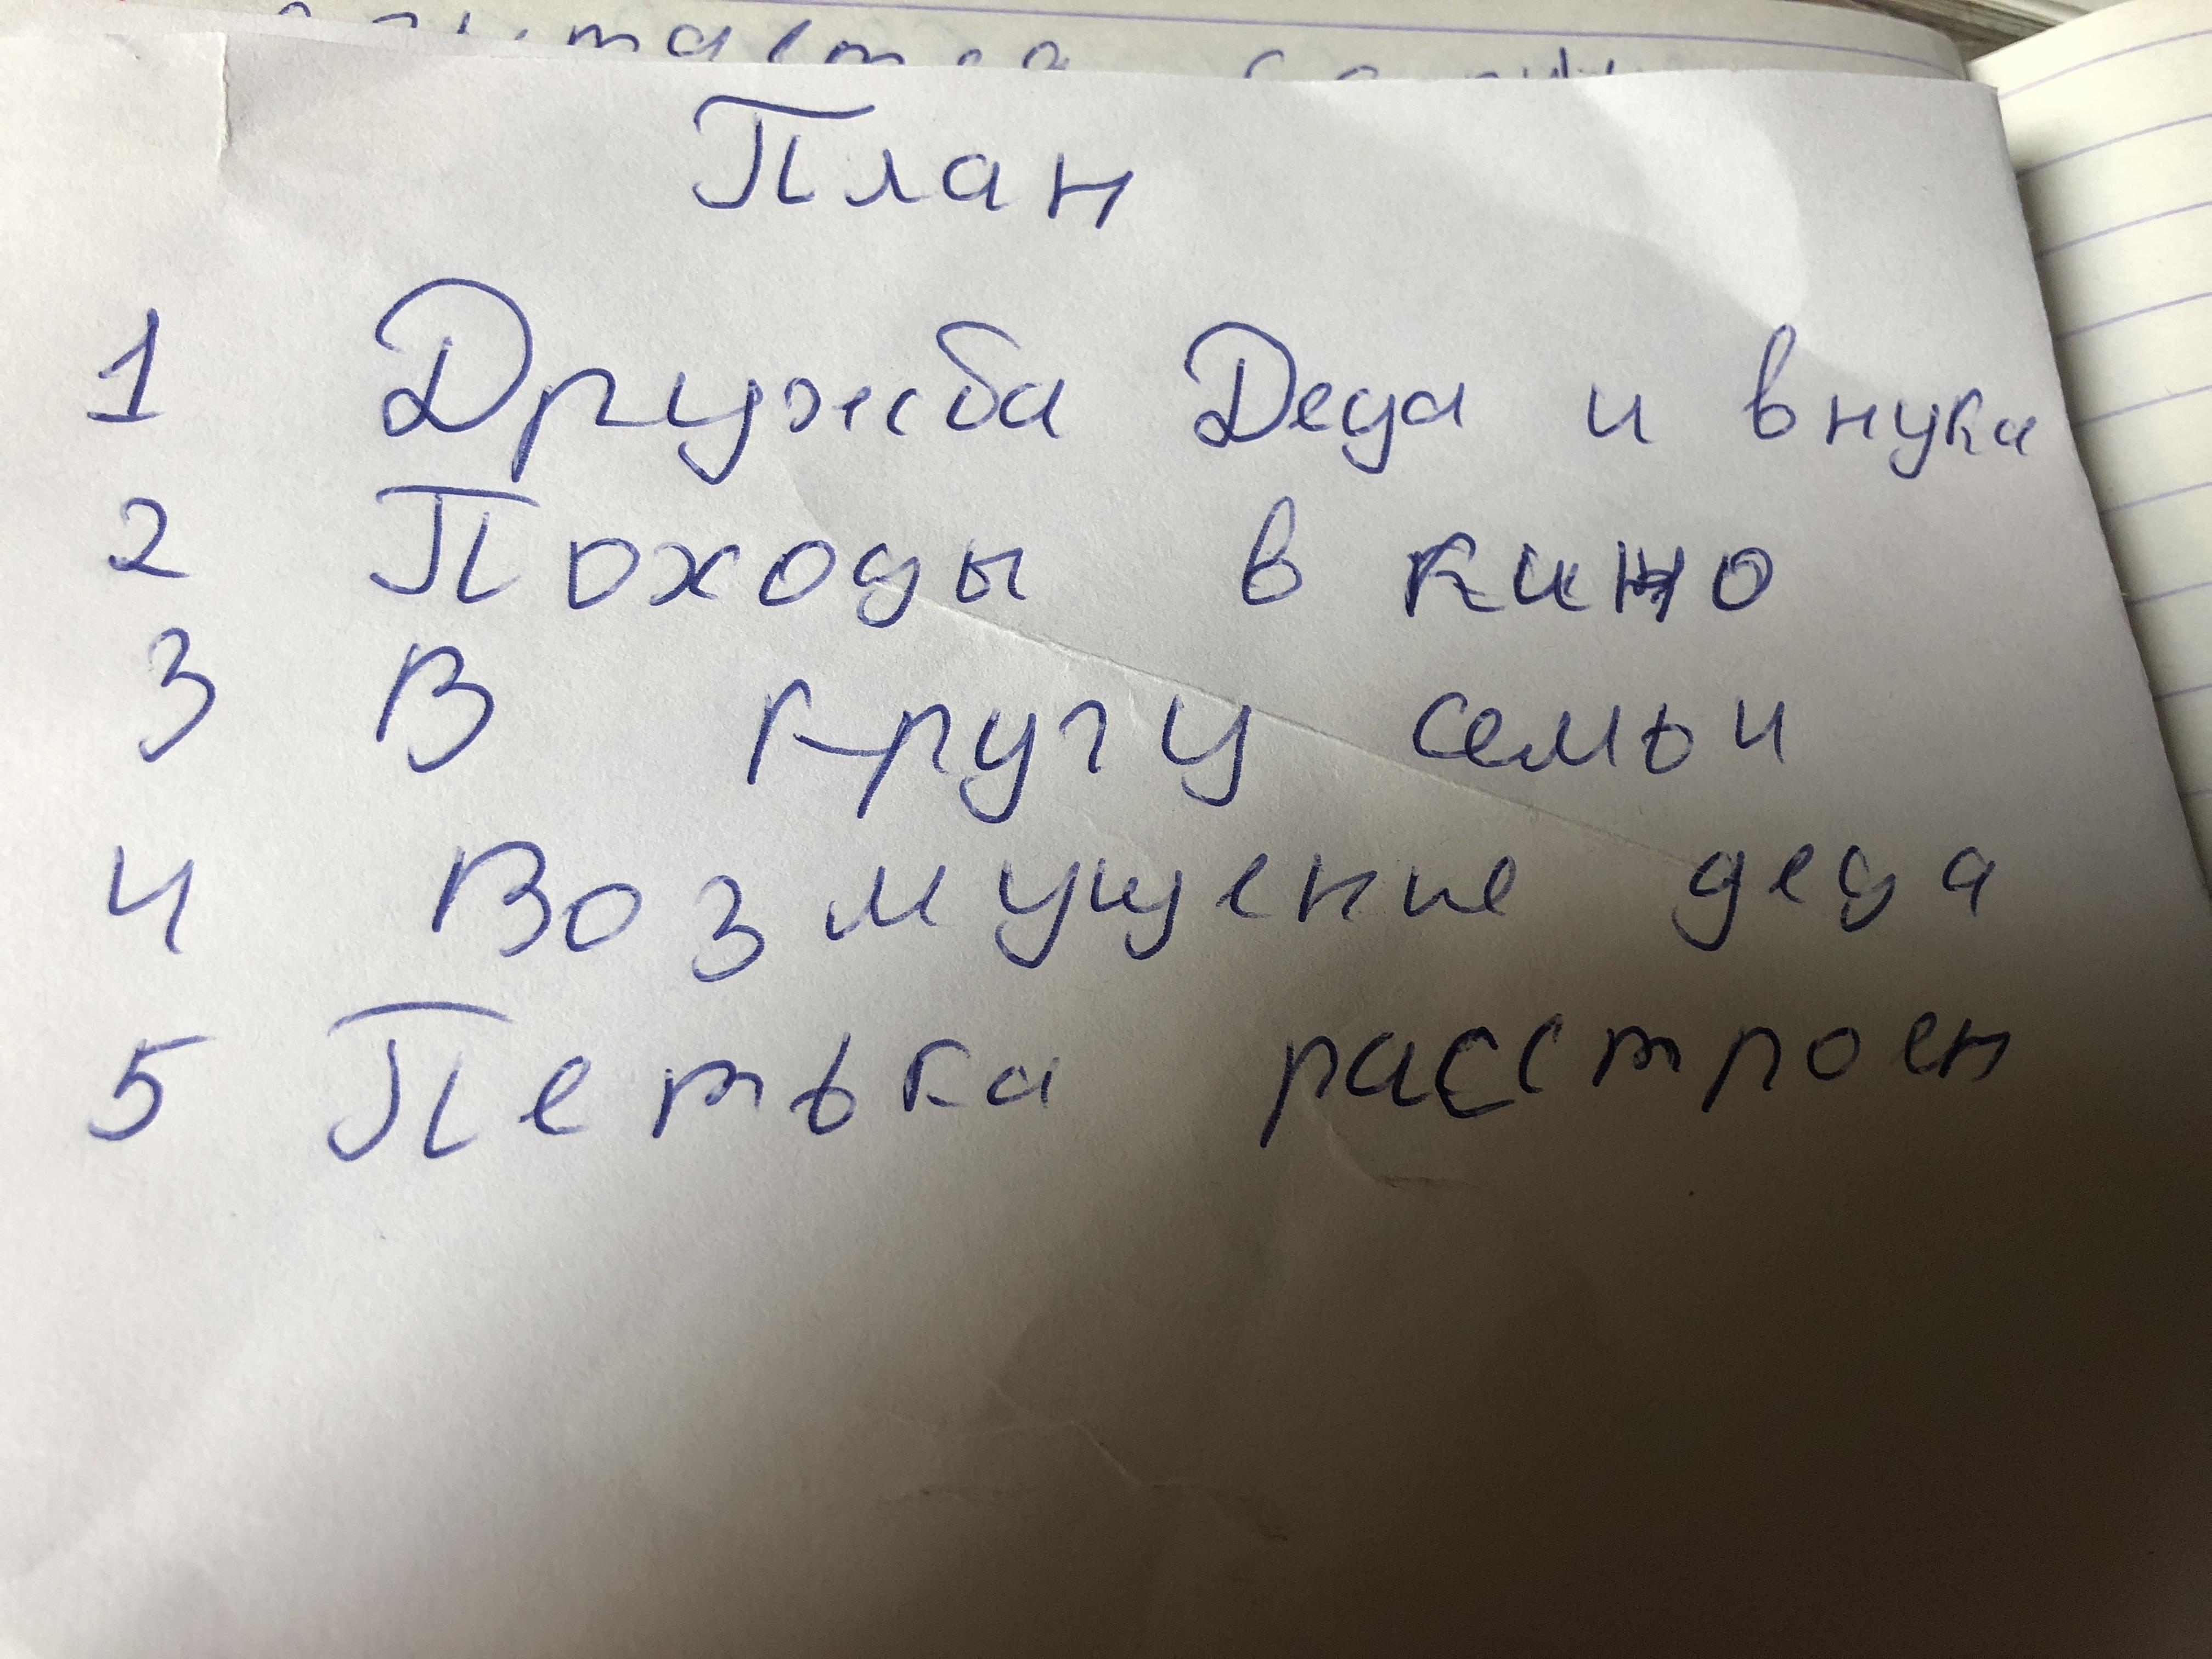 План
1 Дружба Деда и внука
2 Походы в кино
3 В кругу семьи
4 Возмущение деда
5 Петька расстроен